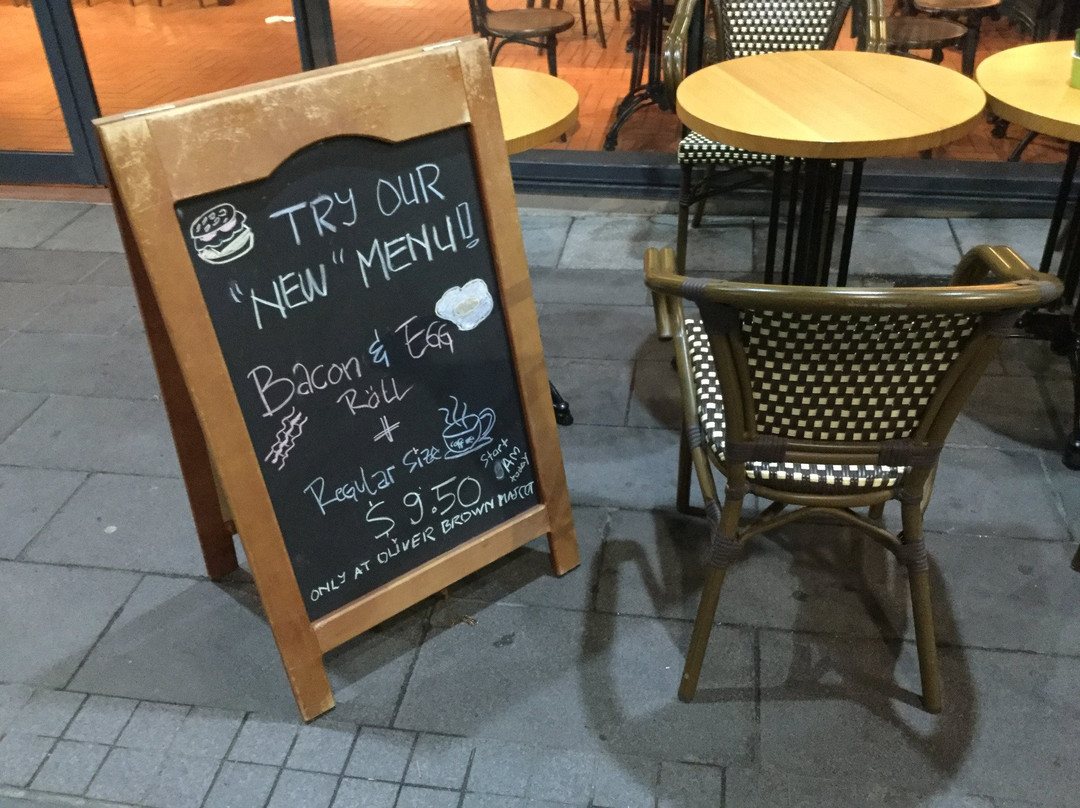 TRY OUR
"NEW" MENU!!
Bacon & EGG
Roll
+
Regular Size
coffee
Start
AM
$9.50
ONLY AT OLIVER BROWN MASCOT